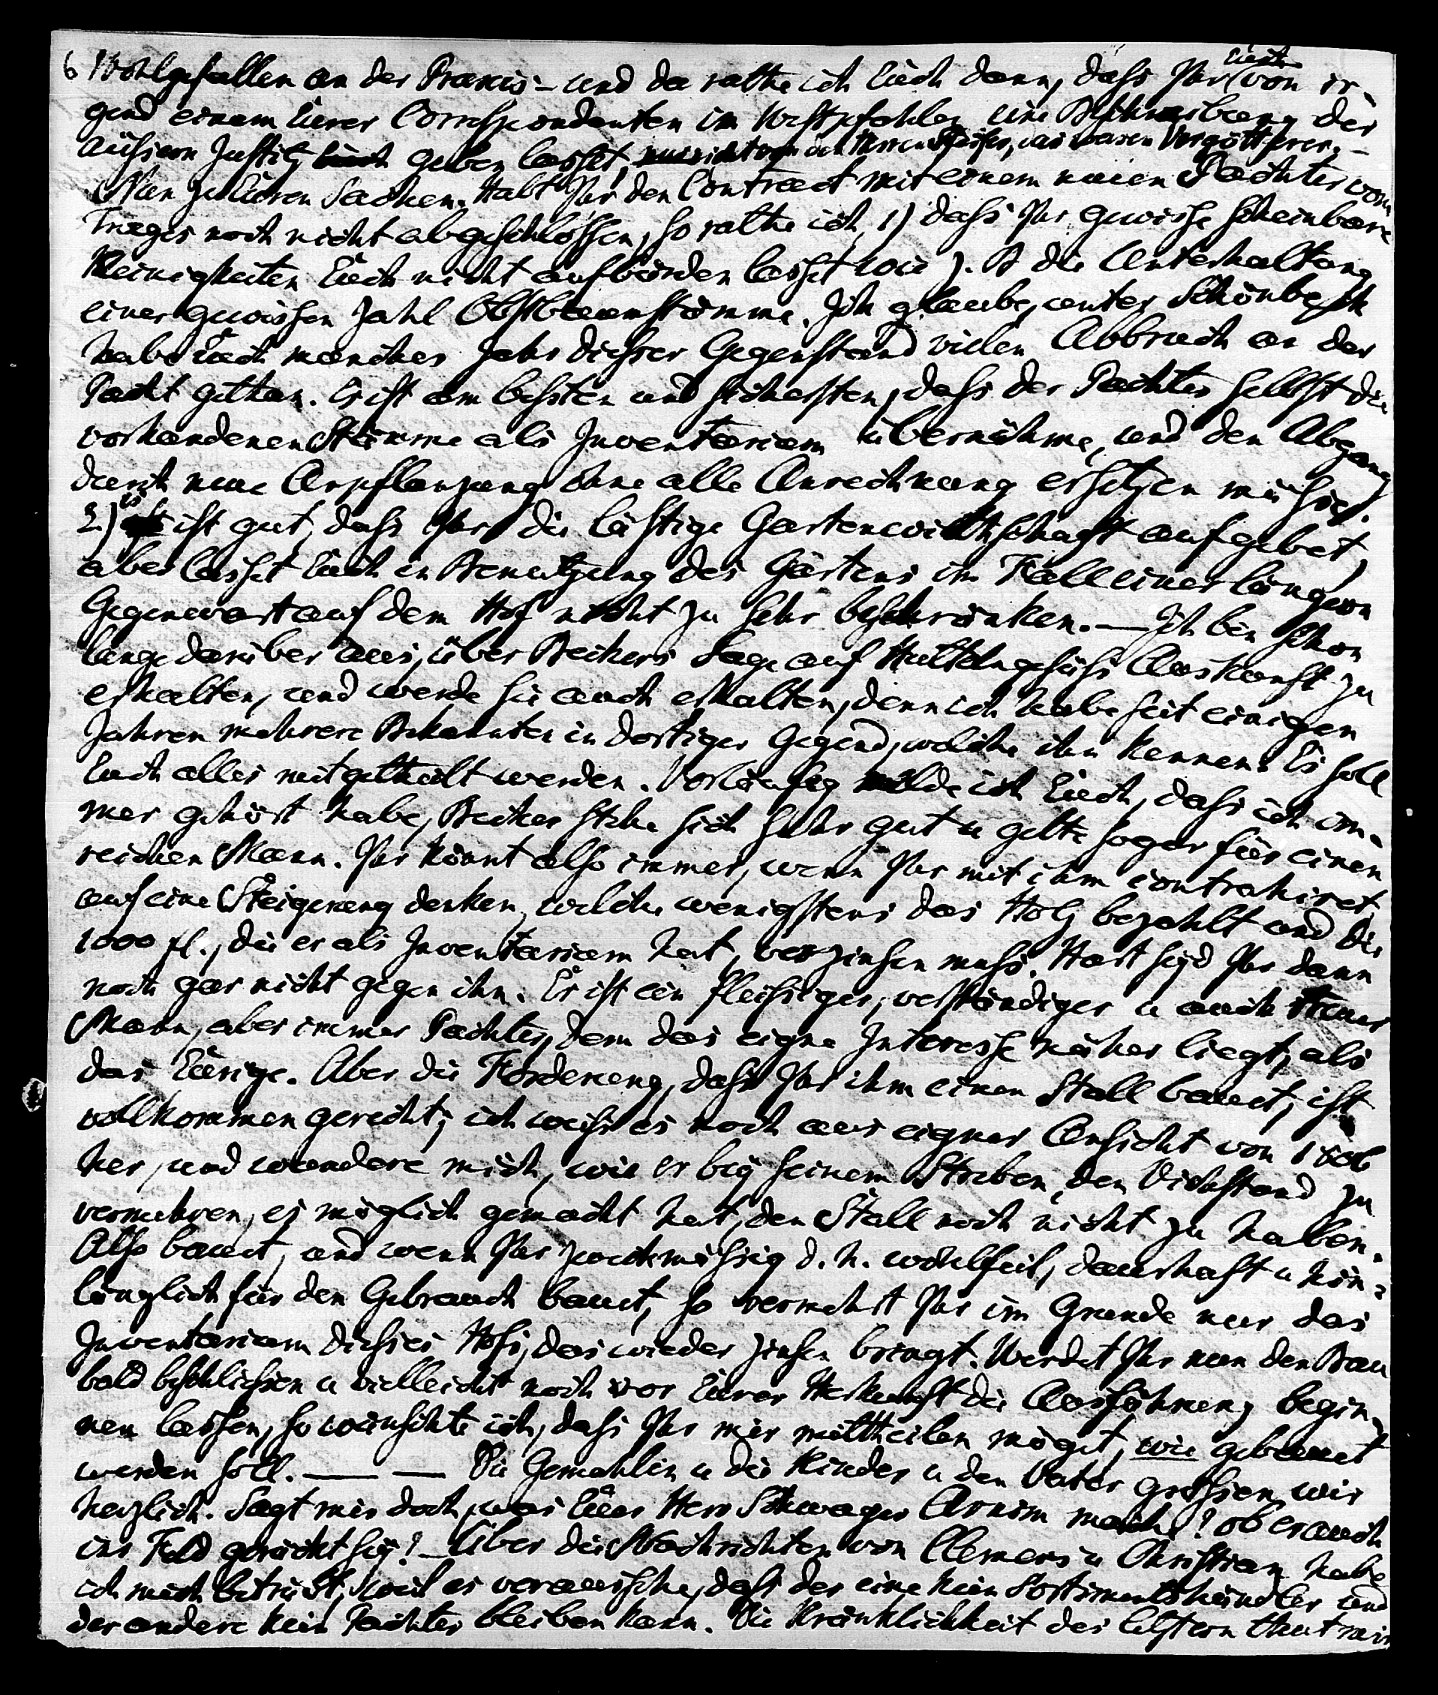 6 Wohlgefallen an der Praxis – und da rathe ich Euch dann, daß Ihr Euch von ir-
gend einem Eurer Correspondenten im Westpfahlen eine Beschreibung der
äußern Justitz geben lasset,
Nun zu Euren Sachen. Habt Ihr den Contract mit einem neuen Pachter vom
Trages noch nicht abgeschlossen, so rathe ich, 1) daß Ihr gewisse scheinbare
Kleinigkeiten Euch nicht aufbürden lasset wie z. B die Unterhaltung
einer gewissen Zahl Obstbaumstämme. Ich glaube, unter Schönbe
habe Euch manches Jahr dieser Gegenstand vielen Abbruch an der
Pacht gethan. Es ist am besten und sichersten, daß der Pachter selbst die
vorhandenen Stämme als Inventarium übernähme, und den Abgang
durch neue Anpflanzung ohne alle Anrechnung ersetzen müsse.
2) es ist gut, daß Ihr die lästige Gartenwirthschaft aufgebet,
aber lasset Euch in Benutzung des Gartens im Fall einer längern
Gegenwart auf dem Hof nicht zu sehr beschränken. — Ich bin schon
lange darüber aus, über Beckers Lage auf Hüttelngesäß Auskunft zu
erhalten, und werde sie auch erhalten, denn ich habe seit einigen
Jahren mehrere Bekannte in dortiger Gegend, welche ihn kennen. Es soll
Euch alles mitgetheilt werden. Vorläufig melde ich Euch, daß ich im-
mer gehört habe, Becker stehe sich sehr gut u gelte sogar für einen
reichen Mann. Ihr könnt also immer, wenn Ihr mit ihm contrahiret,
auf eine Steigerung denken, welche wenigstens das Holz bezahlt und die
1000 fl., die er als Inventarium hat, verzinsen muß. Hart seyd Ihr dann
noch gar nicht gegen ihn. Er ist ein fleißiger, verständiger u auch treuer
Mann, aber immer Pachter, dem das eigne Interesse näher liegt, als
das Eurige. Aber die Forderung, daß Ihr ihm einen Stall bauet, ist
vollkommen gerecht; ich weiß es noch aus eigner Ansicht von 1806
her, und wundere mich, wie er bey seinem Streben, den Viehstand zu
vermehren, es möglich gemacht hat, den Stall noch nicht zu haben.
Also bauet, und wenn Ihr zweckmäßig d. h. wohlfeil, dauerhaft u hin-
länglich für den Gebrauch bauet, so vermehrt Ihr im Grunde nur das
Inventarium dieses Hofs, das wieder Zinsen bringt. Werdet Ihr nun den Bau
bald beschließen u vielleicht noch vor Eurer Herkunft die Ausführung begin-
nen lassen, so wünschte ich, daß Ihr mir mittheilen möget, wie gebauet
werden soll. — — Die Gemahlin u die Kinder u den Vater grüßen wir
herzlich. Sagt mir doch, was Euer Herr Schwager Arnim macht? ob er auch
ins Feld gerückt sey? — Über die Nachrichten von Clemens u Christian habe
ich mich betrübt, weil es voraussehe, daß der eine kein Sortimentshändler und
der andere kein Pachter bleiben kann. Die Kränklichkeit des letztern thut mir